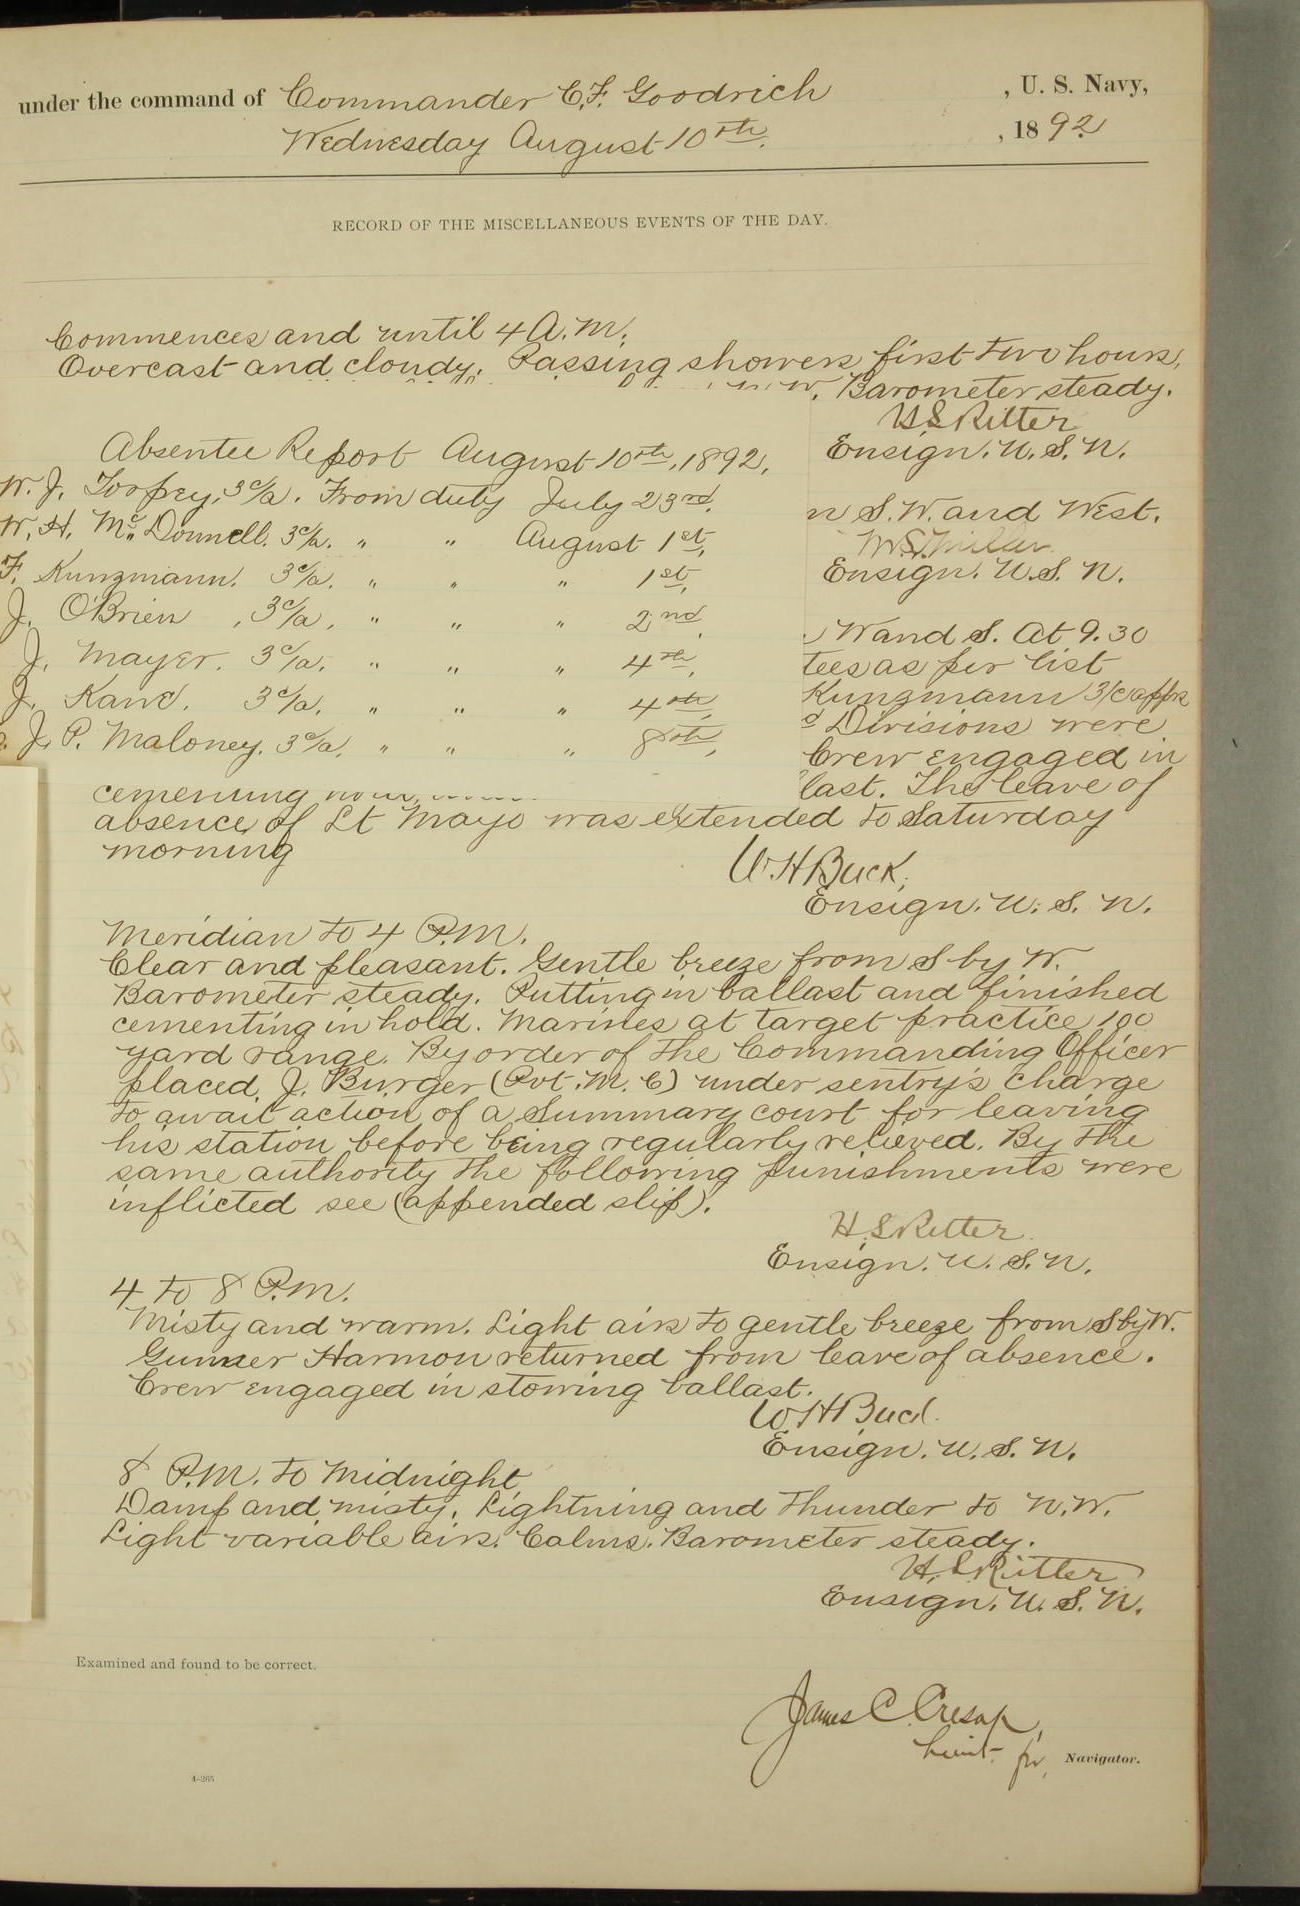 under the command of Commander C.F. Goodrich , U. S. Navy,
Wednesday August 10th. , 1892
RECORD OF THE MISCELLANEOUS EVENTS OF THE DAY.
Commences and until 4 A.M.
Overcast and cloudy. Passing showers first two hours.
W. Barometer steady.
H S Ritter
Ensign. U. S. N.
Absentee Report August 10th, 1892.
W. J. 3c/a. From duty July 23rd.
W. H. McDonnell. 3c/a. " " August 1st.
F. Kunzmann. 3c/a. " " " 1st.
J. O'Brien , 3c/a. " " " 2nd.
J. Mayer. 3c/a. " " " 4th.
J. Kane. 3c/a. " " " 4th.
J. P. Maloney. 3c/a. " " " 8th.
n S.W. and West.
Ensign. U. S. N.
W and S. At 9.30
tees as per list
Kunzmann 3/c appr
d Divisions were
Crew engaged in
last. The leave of
cementing
absence of Lt Mayo was extended to Saturday
morning
W H Buck.
Ensign. U. S. N.
Meridian to 4 P.M.
Clear and pleasant. Gentle breeze from S by W.
Barometer steady. Putting in ballast and finished
cementing in hold. Marines at target practice 100
yard range. By order of the Commanding Officer
placed J. Burger (Pvt. M. C) under sentry's charge
to await action of a Summary court for leaving
his station before being regularly relieved. By the
same authority the following punishments were
inflicted see (appended slip).
H. S Ritter
Ensign. U. S. N.
4 to 8 P.M.
Misty and warm. Light airs to gentle breeze from S by W.
Gunner Harmon returned from leave of absence.
Crew engaged in stowing ballast.
W H Buck
Ensign. U. S. N.
8 P.M. to Midnight
Damp and misty. Lightning and thunder to N.W.
Light variable airs. Calms. Barometer steady.
H. S Ritter
Ensign. U. S. N.
Examined and found to be correct.
James C. Cresap,
Lieut. for, Navigator.
4–265